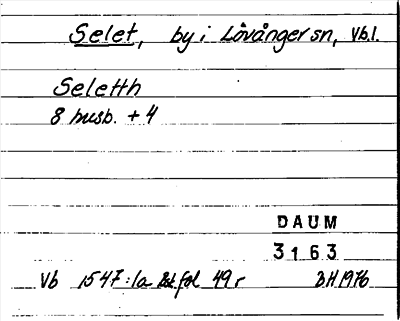 Selet, by i Lövånger sn, Vb.l.
Seletth
8 husb. + 4
DAUM
3163
Vb 1547:1a fol 49 r DH 1976